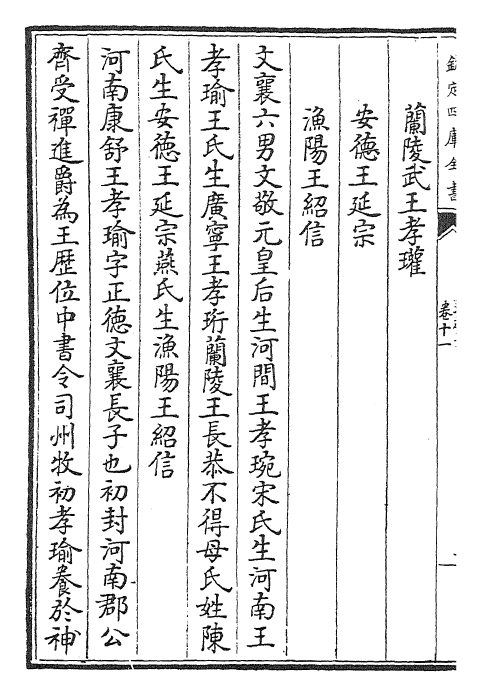 欽定四庫全書
卷十一
蘭陵武王孝瓘
安德王延宗
漁陽王紹信
文襄六男文敬元皇后生河間王孝琬宋氏生河南王
孝瑜王氏生廣寧王孝珩蘭陵王長恭不得母氏姓陳
氏生安德王延宗燕氏生漁陽王紹信
河南康舒王孝瑜字正德文襄長子也初封河南郡公
齊受禪進爵為王歴位中書令司州牧初孝瑜養於神